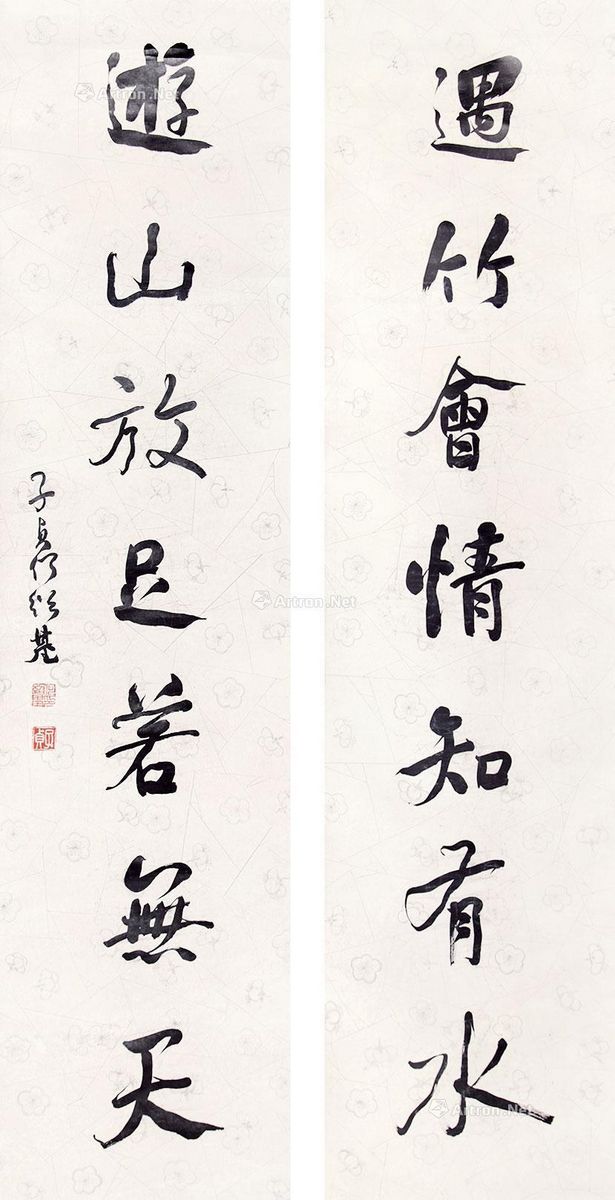 遇竹會情知有水
遊山放足若無天
子貞何紹基
子貞
Artron.Net
Artron.Net
Artron.Net